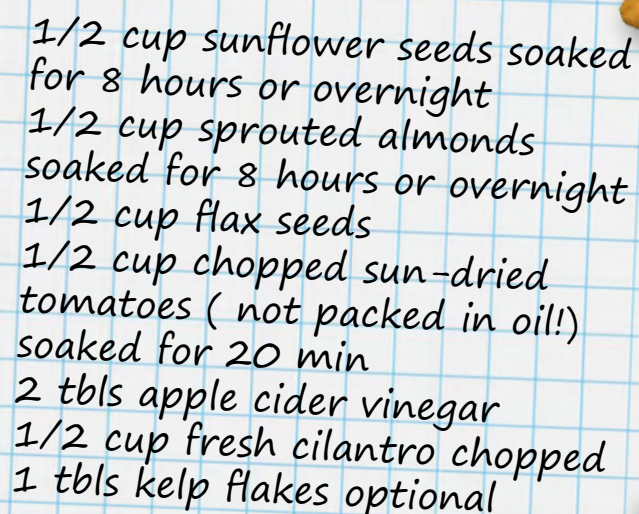 1/2 cup sunflower seeds soaked
for 8 hours or overnight
1/2 cup sprouted almonds
soaked for 8 hours or overnight
1/2 cup flax seeds
1/2 cup chopped sun-dried
tomatoes ( not packed in oil!)
soaked for 20 min
2 tbls apple cider vinegar
1/2 cup fresh cilantro chopped
1 tbls kelp flakes optional